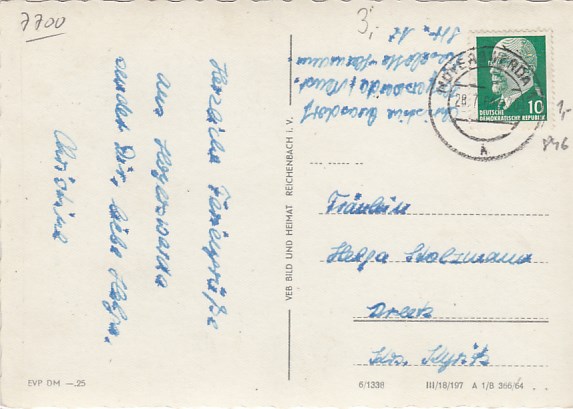 7700
3,-
Herzliche Feriengrüße
aus Hoyerswerda
sendet Dir, liebe Helga,
Christine
Christine
Hoyerswerda / Neust.
Str.
VEB BILD UND HEIMAT REICHENBACH I. V.
HOYERSWERDA
28.7.
A
10
DEUTSCHE
DEMOKRATISCHE REPUBLIK
1,-
846
Fräulein
Helga Stolzmann
Dreetz
Krs. Kyritz
EVP DM —.25
6/1338
III/18/197 A 1/B 366/64